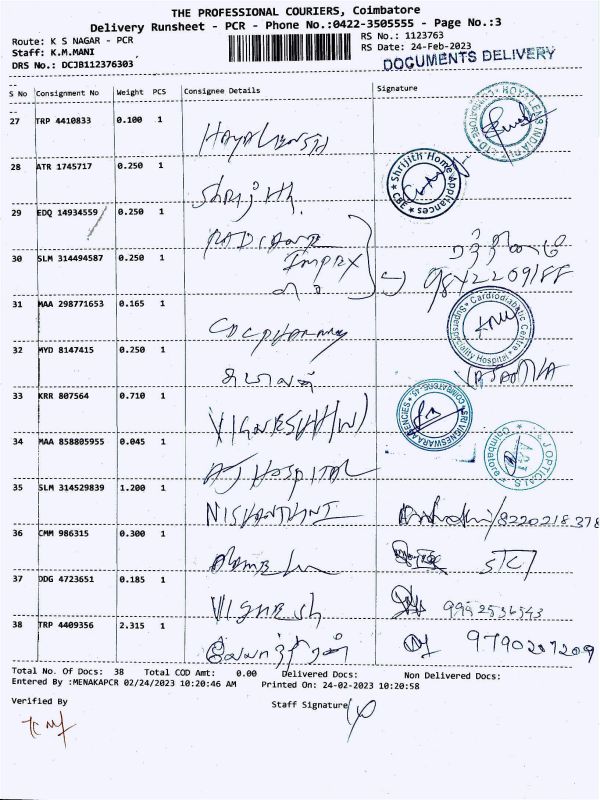 THE PROFESSIONAL COURIERS, Coimbatore
Delivery Runsheet - PCR - Phone No.:0422-3505555 - Page No.:3
Route: K S NAGAR - PCR
Staff: K.M.MANI
DRS No.: DCJB112376303
RS No.: 1123763
RS Date: 24-Feb-2023
DOCUMENTS DELIVERY
S No Consignment No Weight PCS Consignee Details Signature
27 TRP 4410833 0.100 1
28 ATR 1745717 0.250 1
Shrijith Home Appliances CBE
Shrijith
29 EDQ 14934559 0.250 1
RADIANT
30 SLM 314494587 0.250 1
IMPEX
9842209188
31 MAA 298771653 0.165 1
Cardiodiabetic Centre Superspeciality Hospital
CDC PHARMACY
32 MYD 8147415 0.250 1
33 KRR 807564 0.710 1
SRI VIGNESWARA AGENCIES COIMBATORE-45
VIGNESHWA
34 MAA 858805955 0.045 1
OPTICALS Coimbatore
AJ HOSPITAL
35 SLM 314529839 1.200 1
NISHANTHINI
8220218378
36 CMM 986315 0.300 1
37 DDG 4723651 0.185 1
VIGNESH
38 TRP 4409356 2.315 1
9790207209
Total No. Of Docs: 38 Total COD Amt: 0.00 Delivered Docs: Non Delivered Docs:
Entered By :MENAKAPCR 02/24/2023 10:20:46 AM Printed On: 24-02-2023 10:20:58
Verified By
Staff Signature